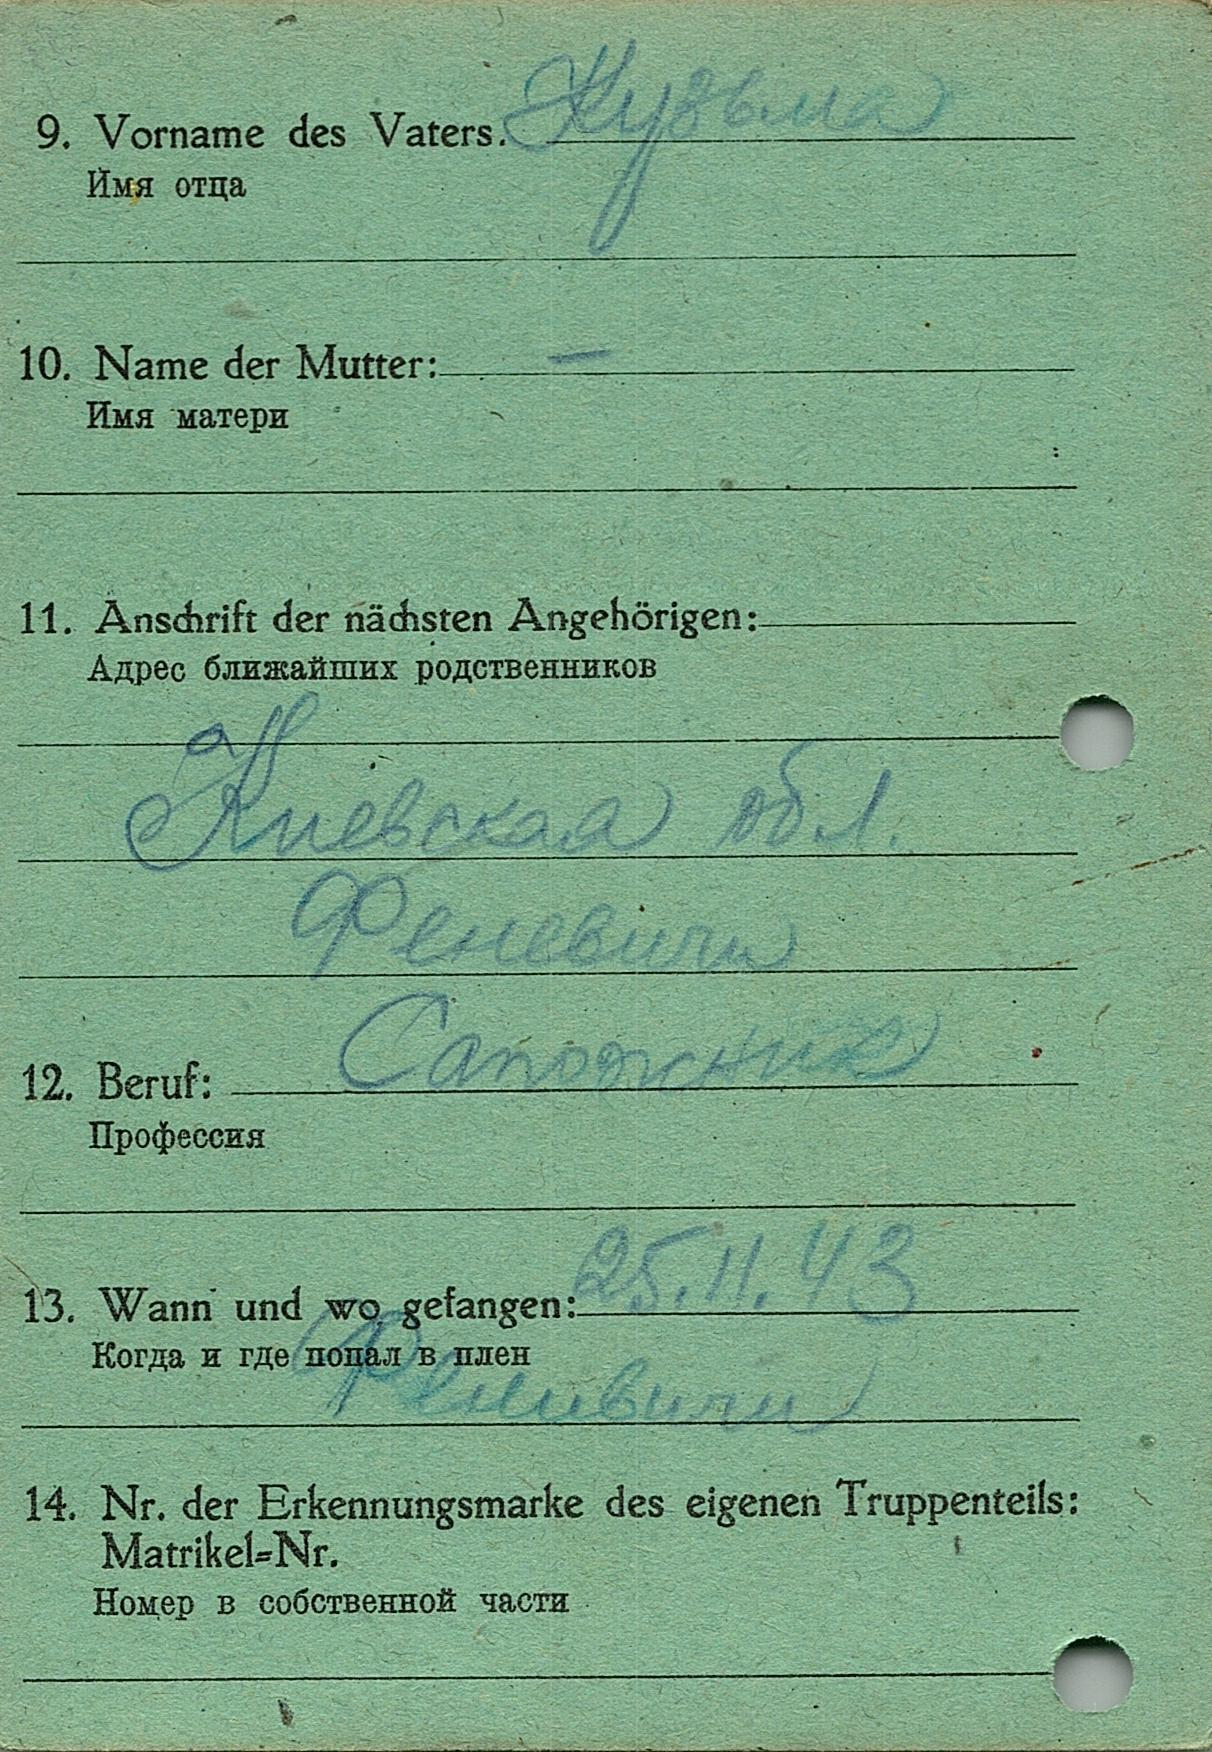 9. Vorname des Vaters. Кузьма
Имя отца
10. Name der Mutter: –
Имя матери
11. Anschrift der nächsten Angehörigen:
Адрес ближайших родственников
Киевская обл.
Феневичи
12. Beruf: Сапожник
Профессия
13. Wann und wo gefangen: 25.11.43
Когда и где попал в плен
Феневичи
14. Nr. der Erkennungsmarke des eigenen Truppenteils:
Matrikel=Nr.
Номер в собственной части